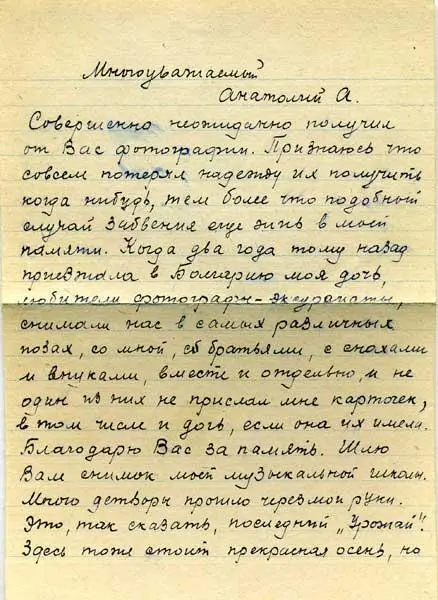 Многоуважаемый
Анатолий А.
Совершенно неожиданно получил
от Вас фотографии. Признаюсь что
совсем потерял надежду их получить
когда нибудь, тем более что подобный
случай забвения еще жив в моей
памяти. Когда два года тому назад
приезжала в Болгарию моя дочь,
любители фотографы-экскурсисты,
снимали нас в самых различных
позах, со мной, с братьями, с снахами
и внуками, вместе и отдельно, и не
один из них не прислал мне карточек,
в том числе и дочь, если она их имела.
Благодарю Вас за память. Шлю
Вам снимок моей музыкальной школы.
Много детворы прошло через мои руки.
Это, так сказать, последний „Урожай“!
Здесь тоже стоит прекрасная осень, но